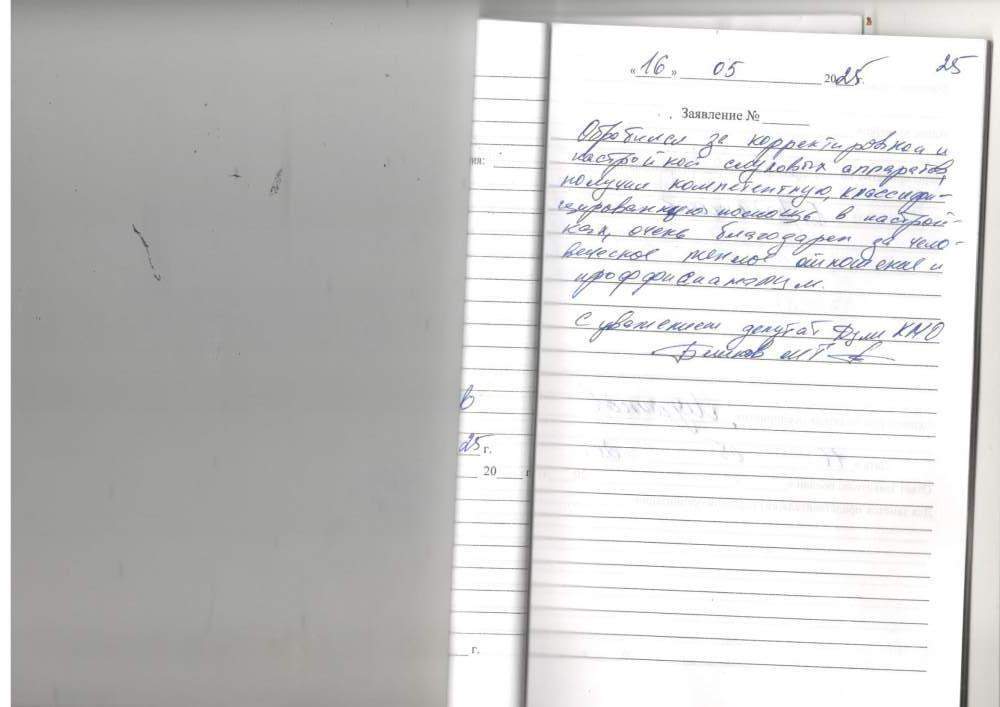 25
«16» 05 2025г.
Заявление №
Обратился за корректировкой и
настройкой слуховых аппаратов,
получил компетентную, классифи-
цированную помощь в настрой-
ках, очень благодарен за чело-
веческое теплое отношение и
проффисианализм.
С уважением депутат Думы КМО
МТ
ия:
в
25 г.
20 г
г.